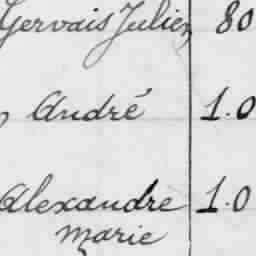 Gervais Julien 80
André 1.0
Alexandre 1.0
Marie